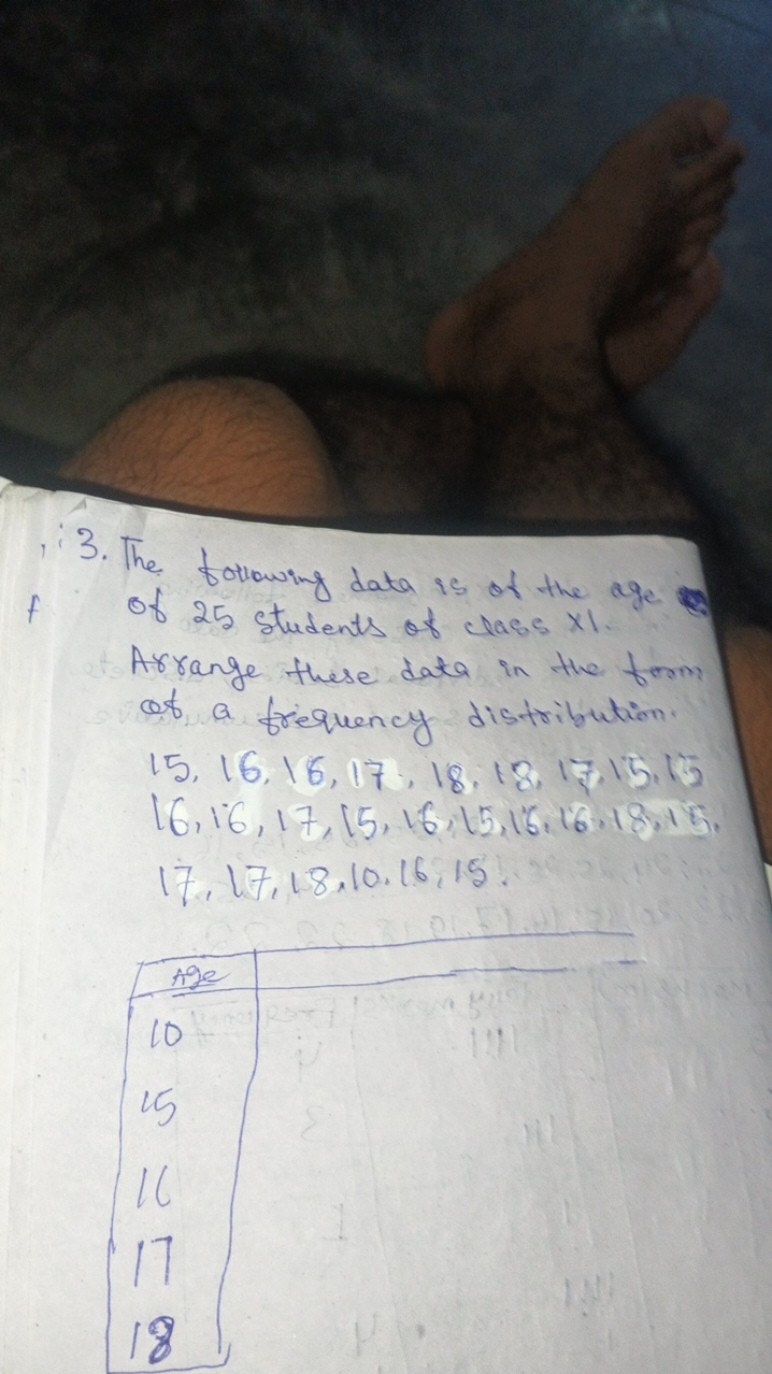 3. The following data is of the age
of 25 students of class XI.
Arrange these data in the form
of a frequency distribution.
15, 16, 16, 17, 18, 18, 17, 15, 15
16, 16, 17, 15, 16, 15, 16, 16, 18, 15,
17, 17, 18, 10, 16, 15.
Age
10
15
16
17
18